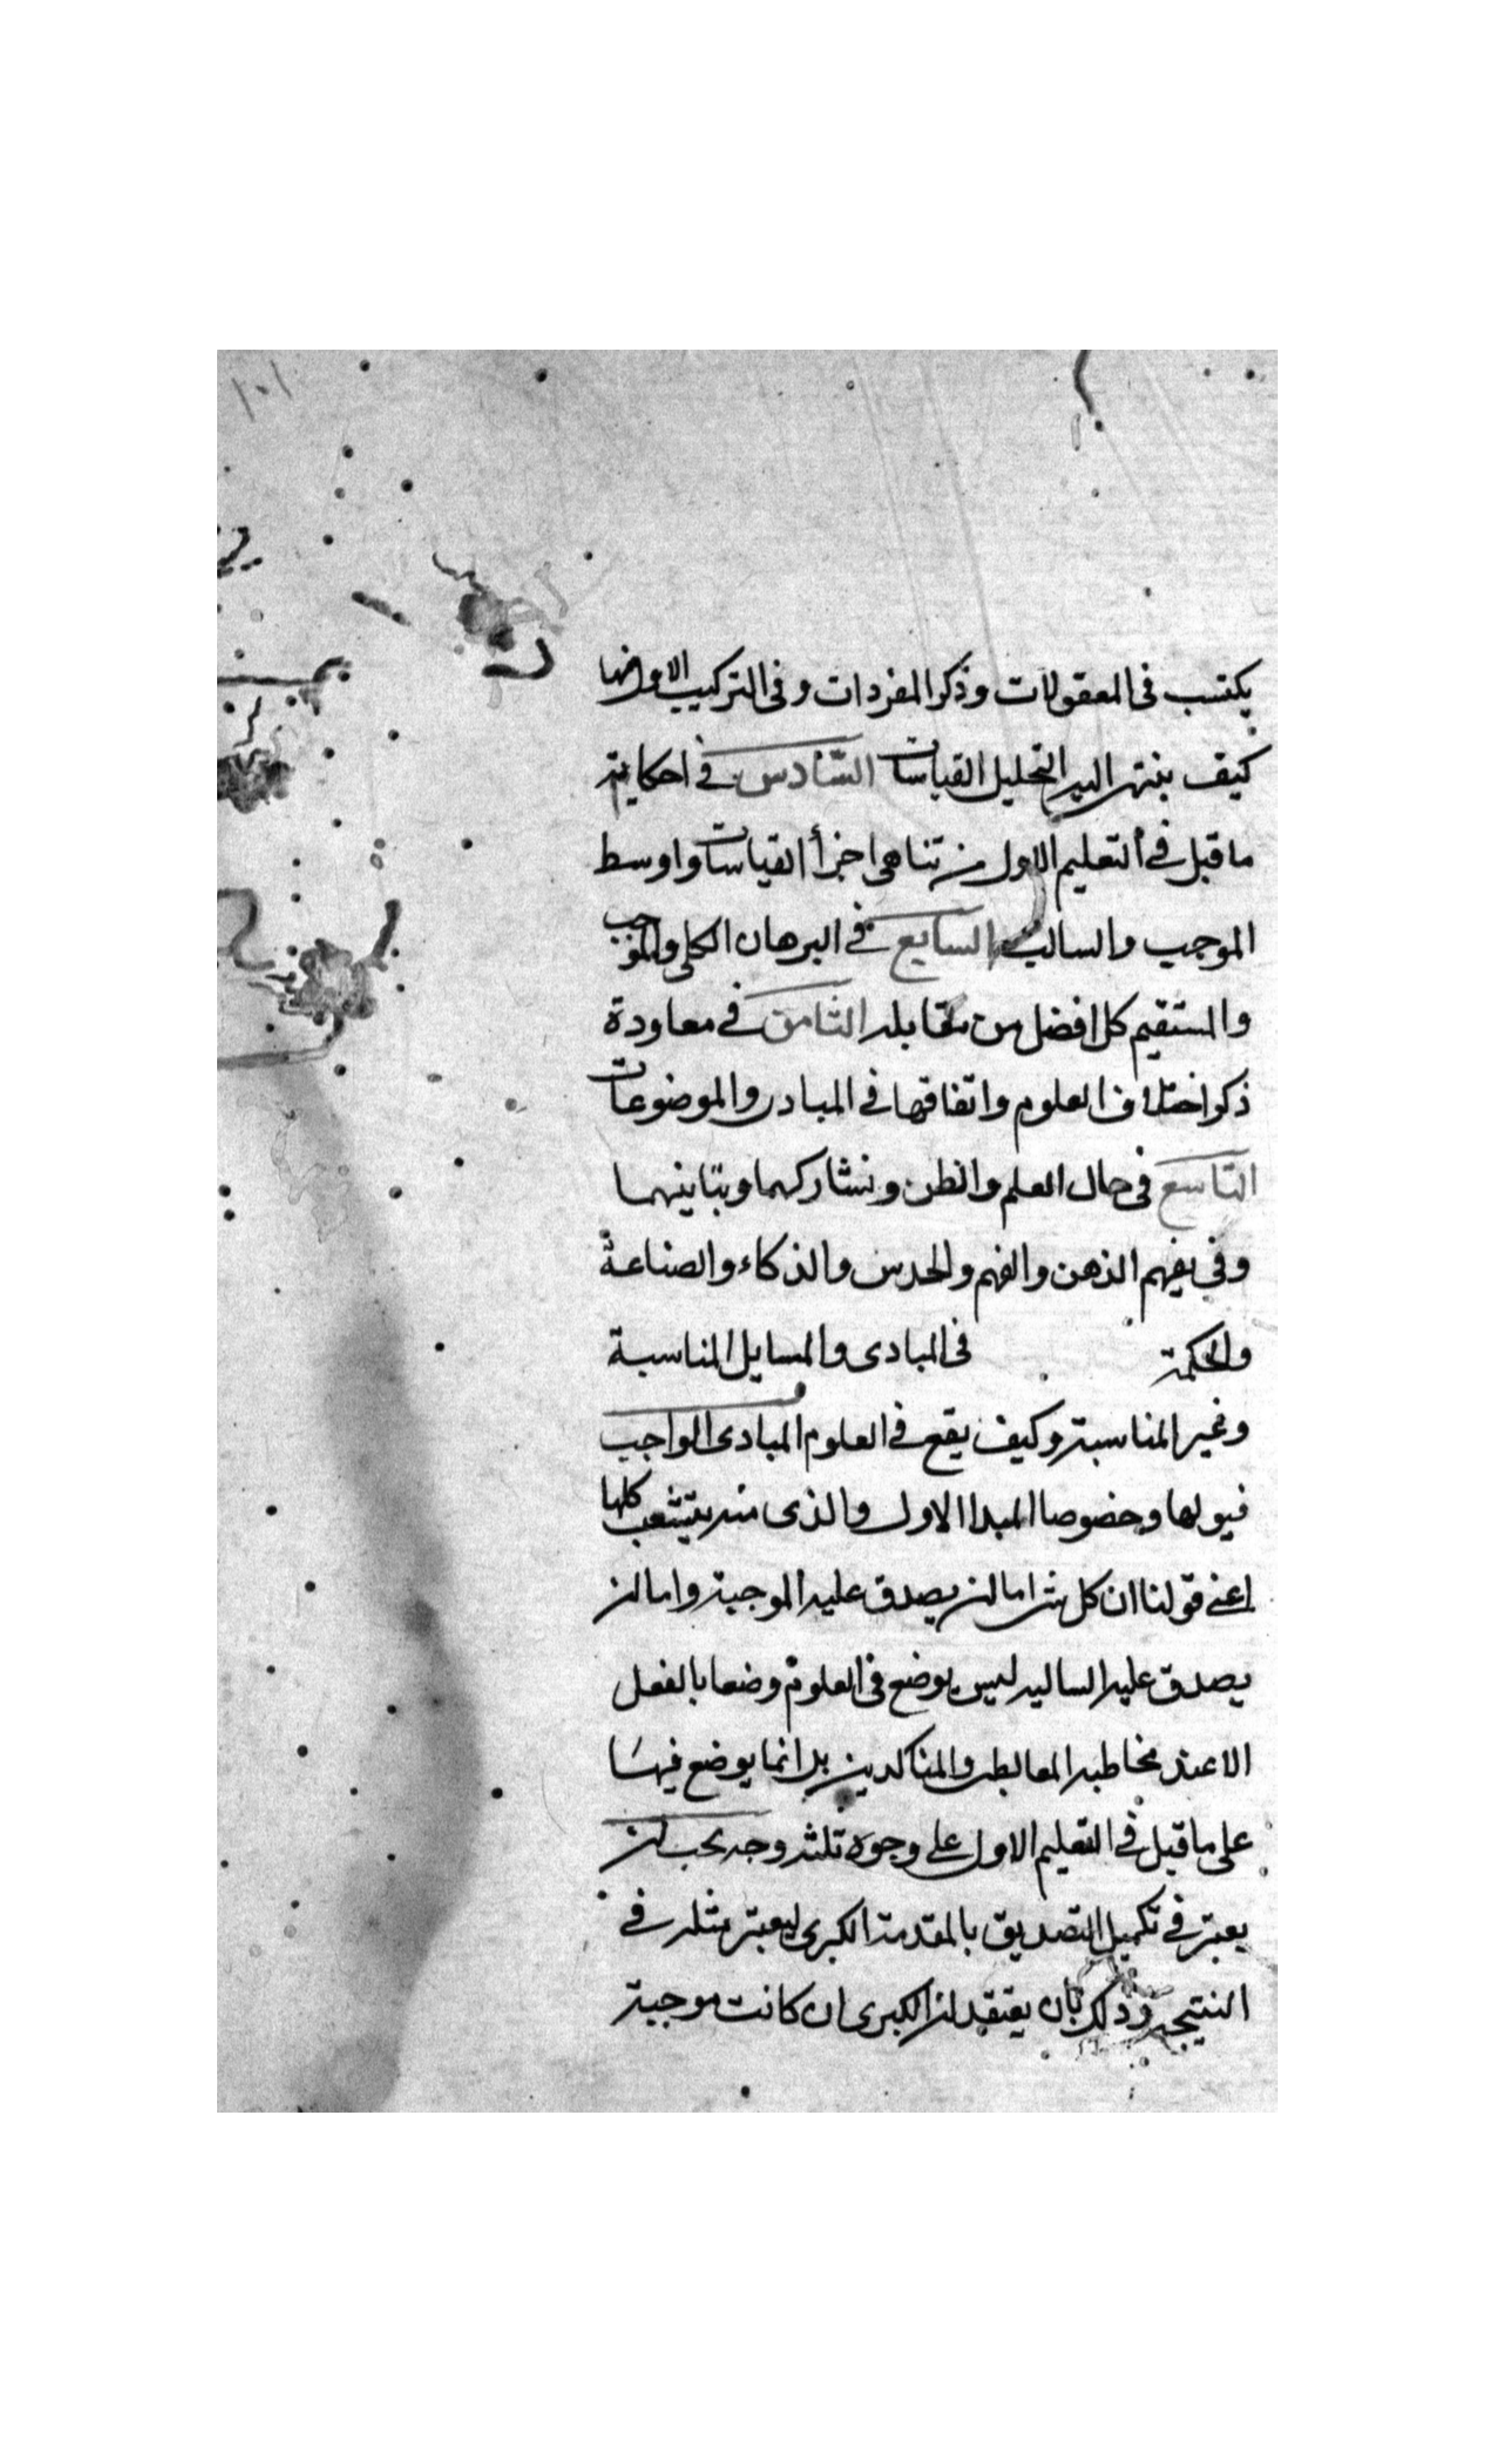 ١٠١
يكتسب فى المعقولات وذكر المفردات وفى التركيب الاول منها
كيف ينتهى اليه التحليل القياسات السّادس فى احكايته
ما قبل فى التعليم الاول من تناهى اجزأ القياسات واوسط
الموجب والسالب السابع فى البرهان الكلى والموجب
والمستقيم كل افضل من مقابله الثامن فى معاودة
ذكر اختلاف العلوم واتفاقها فى المبادى والموضوعات
التاسع فى حال العلم والظن وتشاركهما وتباينهما
وفى يفهم الذهن والفهم والحدس والذكاء والصناعة
والحكمة فى المبادى والمسايل المناسبة
وغير المناسبة وكيف يقع فى العلوم المبادى الواجب
قبولها وخصوصا المبدا الاول والذى منه يتشعب كلها
اعنى قولنا ان كل شى اما ان يصدق عليه الموجبة واما ان
يصدق عليه السالبه ليس يوضع فى العلوم وضعا بالفعل
الا عند مخاطبه المغالطين والمناكدين بل انما يوضع فيها
على ما قيل فى التعليم الاول على وجوه ثلثه وجه يجب ان
يعتبر فى تكميل التصديق بالمقدمة الكبرى ليعتبر مثله فى
النتيجه وذلك بان يعتقد ان الكبرى ان كانت موجبة